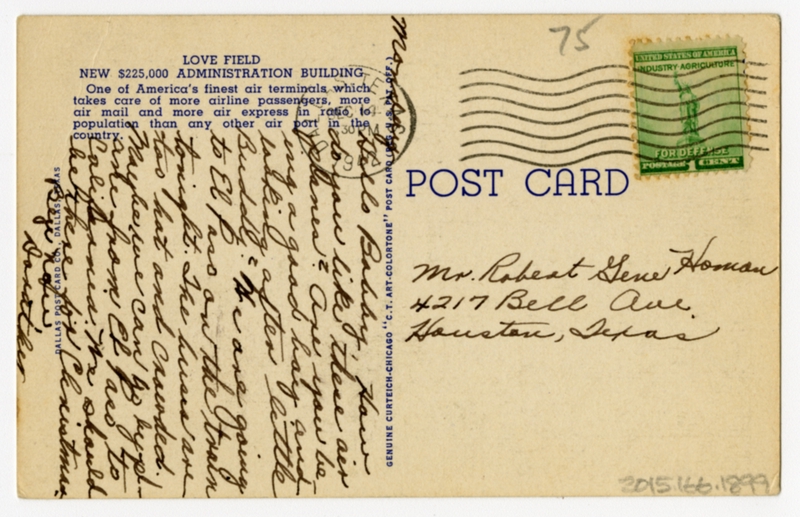 75
LOVE FIELD
NEW $225,000 ADMINISTRATION BUILDING
One of America's finest air terminals, which
takes care of more airline passengers, more
air mail and more air express in ratio to
population than any other air port in the
country.
Monday
Hello Bobby, How
do you like these air
planes? Are you be-
ing a good boy and
taking after little
Buddy? We are going
to El Paso on the train
tonight. The buses are
too hot and crowded.
Maybe we can go by pl-
ane from El Paso to
California. We should
be there by Christmas.
Bye now
Dorothy
DALLAS POST CARD CO., DALLAS, TEXAS
GENUINE CURTEICH-CHICAGO "C.T. ART-COLORTONE" POST CARD (REG. U.S. PAT. OFF.)
POST CARD
UNITED STATES OF AMERICA
INDUSTRY AGRICULTURE
FOR DEFENSE
POSTAGE 1 CENT
Mr. Robert Gene Homan
4217 Bell Ave.
Houston, Texas
2015.166.1899